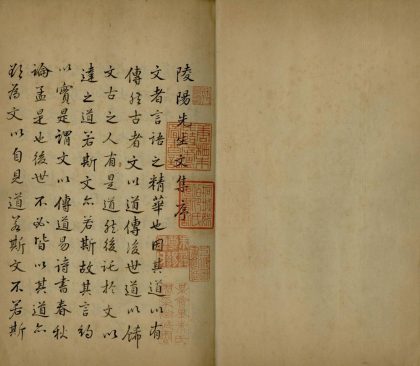 陵陽先生文集序
文者言語之精華也因其道以有
傳然古者文以道傳後世道以飾
文古之人有是道然後託於文以
達之道若斯文亦若斯故其言約
以實是謂文以傳道易詩書春秋
論孟是也後世不必皆以其道亦
為文以自見道若斯文不若斯